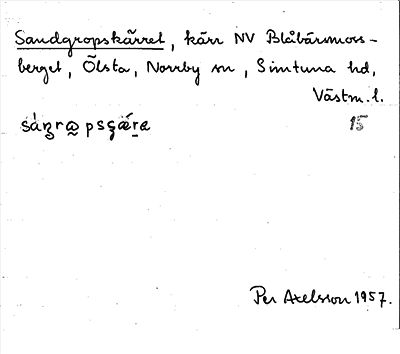 Sandgropskärret, kärr NV Blåbärsmoss-
berget, Ölsta, Norrby sn, Simtuna hd,
Västm. l.
15
Per Axelsson 1957.